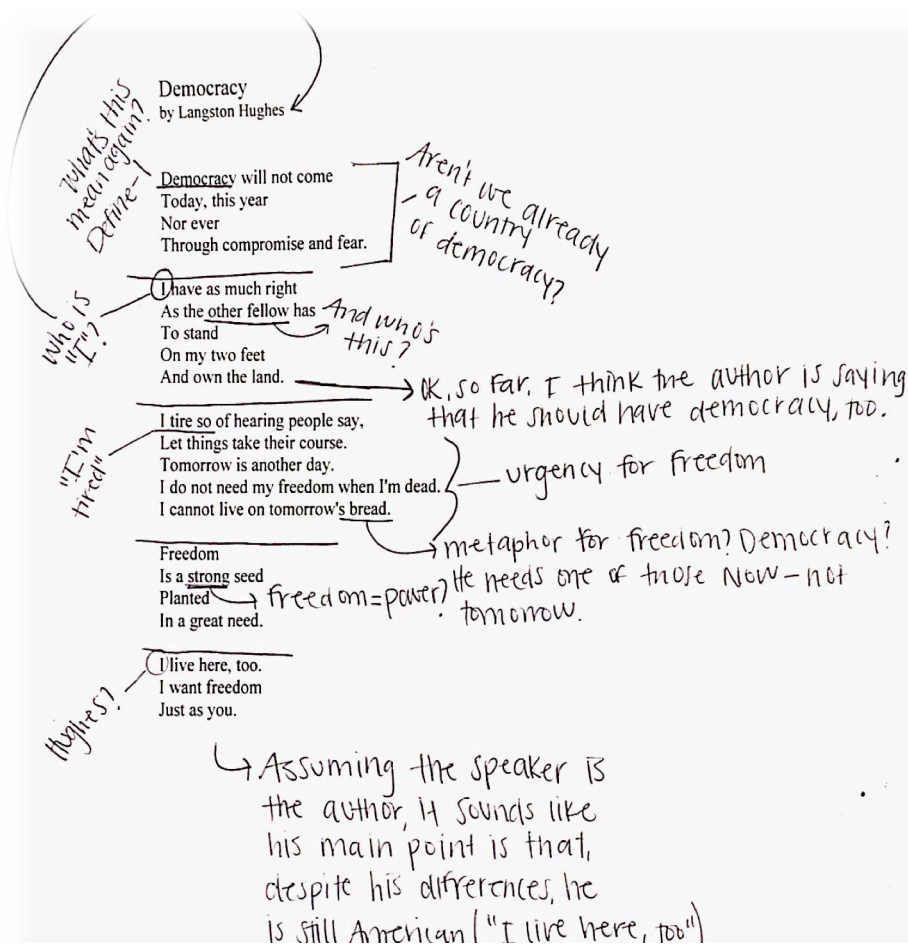 Democracy
by Langston Hughes
What's this
mean again?
Define-
Democracy will not come
Today, this year
Nor ever
Through compromise and fear.
Aren't we already
a country
of democracy?
I have as much right
As the other fellow has
To stand
On my two feet
And own the land.
Who is
"I"?
And who's
this?
OK, so far, I think the author is saying
that he should have democracy, too.
I tire so of hearing people say,
Let things take their course.
Tomorrow is another day.
I do not need my freedom when I'm dead.
I cannot live on tomorrow's bread.
"I'm
tired"
urgency for freedom
metaphor for freedom? Democracy?
He needs one of those NOW - not
tomorrow.
Freedom
Is a strong seed
Planted
In a great need.
freedom=power?
I live here, too.
I want freedom
Just as you.
Hughes?
Assuming the speaker is
the author, it sounds like
his main point is that,
despite his differences, he
is still American ("I live here, too")